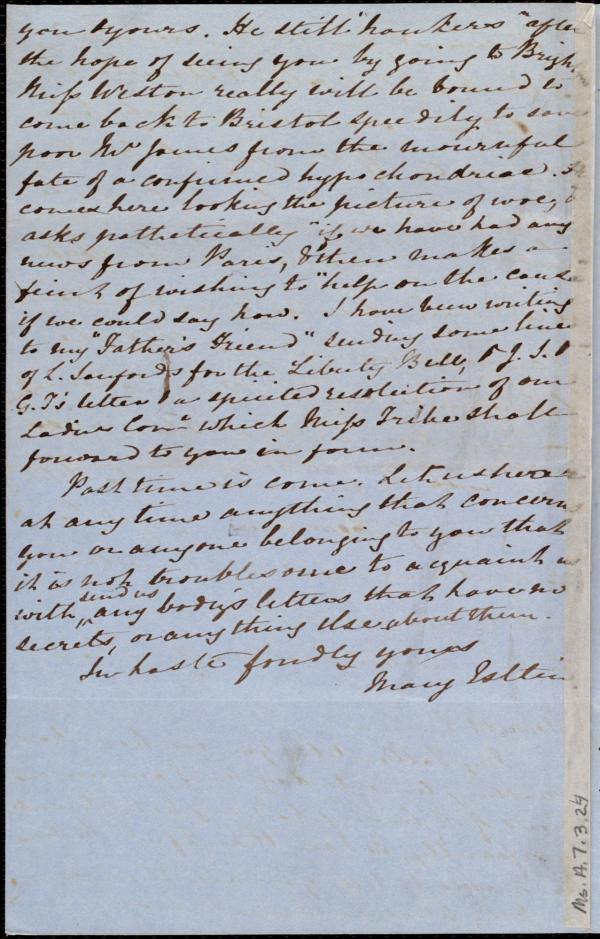 you & yours. He still "hankers" after
the hope of seeing you by going to Brigh
Miss Weston really will be bound to
come back to Bristol speedily to save
poor Mr James from the mournful
fate of a confirmed hypochondriac.
comes here looking the picture of woe, &
asks pathetically "if we have had any
news from Paris, & then makes a
feint of wishing to "help on the cause
if we could say how. I have been writing
to my "Father's Friend" sending some lines
of L. Sanford's for the Liberty Bell,
G. T's letter & a spirited resolution of our
Ladies Comee which Miss Tribe shall
forward to you in form.
Post time is come. Let us hear
at any time anything that concerns
you or anyone belonging to you that
it is not troublesome to acquaint us
with, send us any body's letters that have no
secrets, or any thing else about them.
In haste fondly yours
Mary Estlin
Ms. A. 7. 3. 24